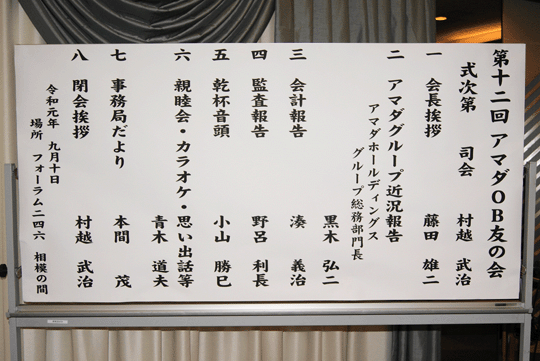 第十二回 アマダOB友の会
式次第 司会 村越 武治
一 会長挨拶 藤田 雄二
二 アマダグループ近況報告
アマダホールディングス
グループ総務部門長
黒木 弘二
三 会計報告 湊 義治
四 監査報告 野呂 利長
五 乾杯音頭 小山 勝巳
六 親睦会・カラオケ・思い出話等
青木 道夫
七 事務局だより 本間 茂
八 閉会挨拶 村越 武治
令和元年 九月十日
場所 フォーラム二四六 相模の間